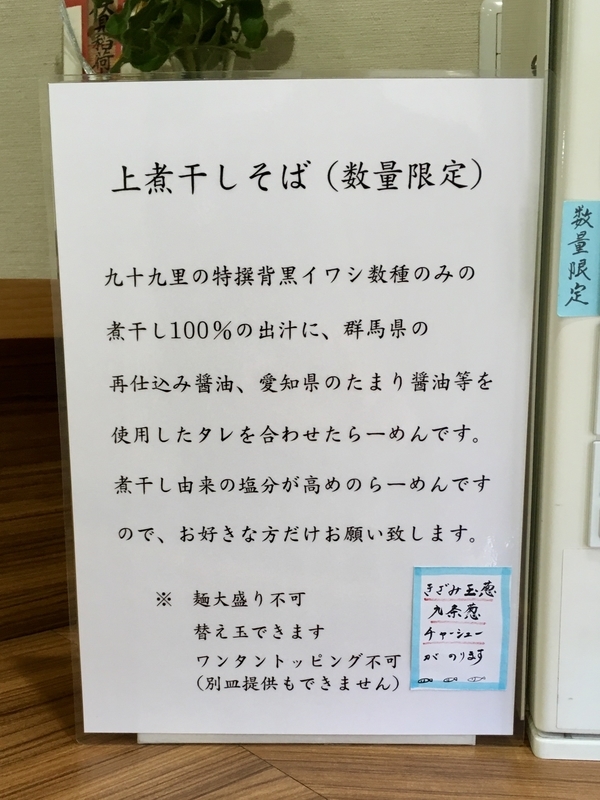 伏見稲荷
上煮干しそば（数量限定）
九十九里の特撰背黒イワシ数種のみの
煮干し100％の出汁に、群馬県の
再仕込み醤油、愛知県のたまり醤油等を
使用したタレを合わせたらーめんです。
煮干し由来の塩分が高めのらーめんです
ので、お好きな方だけお願い致します。
※ 麺大盛り不可
替え玉できます
ワンタントッピング不可
（別皿提供もできません）
きざみ玉葱
九条葱
チャーシュー
がのります
数量限定